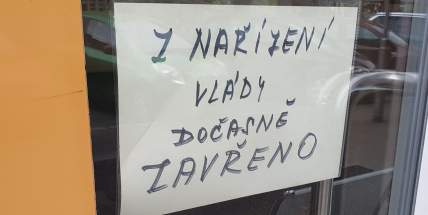 Z NAŘÍZENÍ
VLÁDY
DOČASNĚ
ZAVŘENO